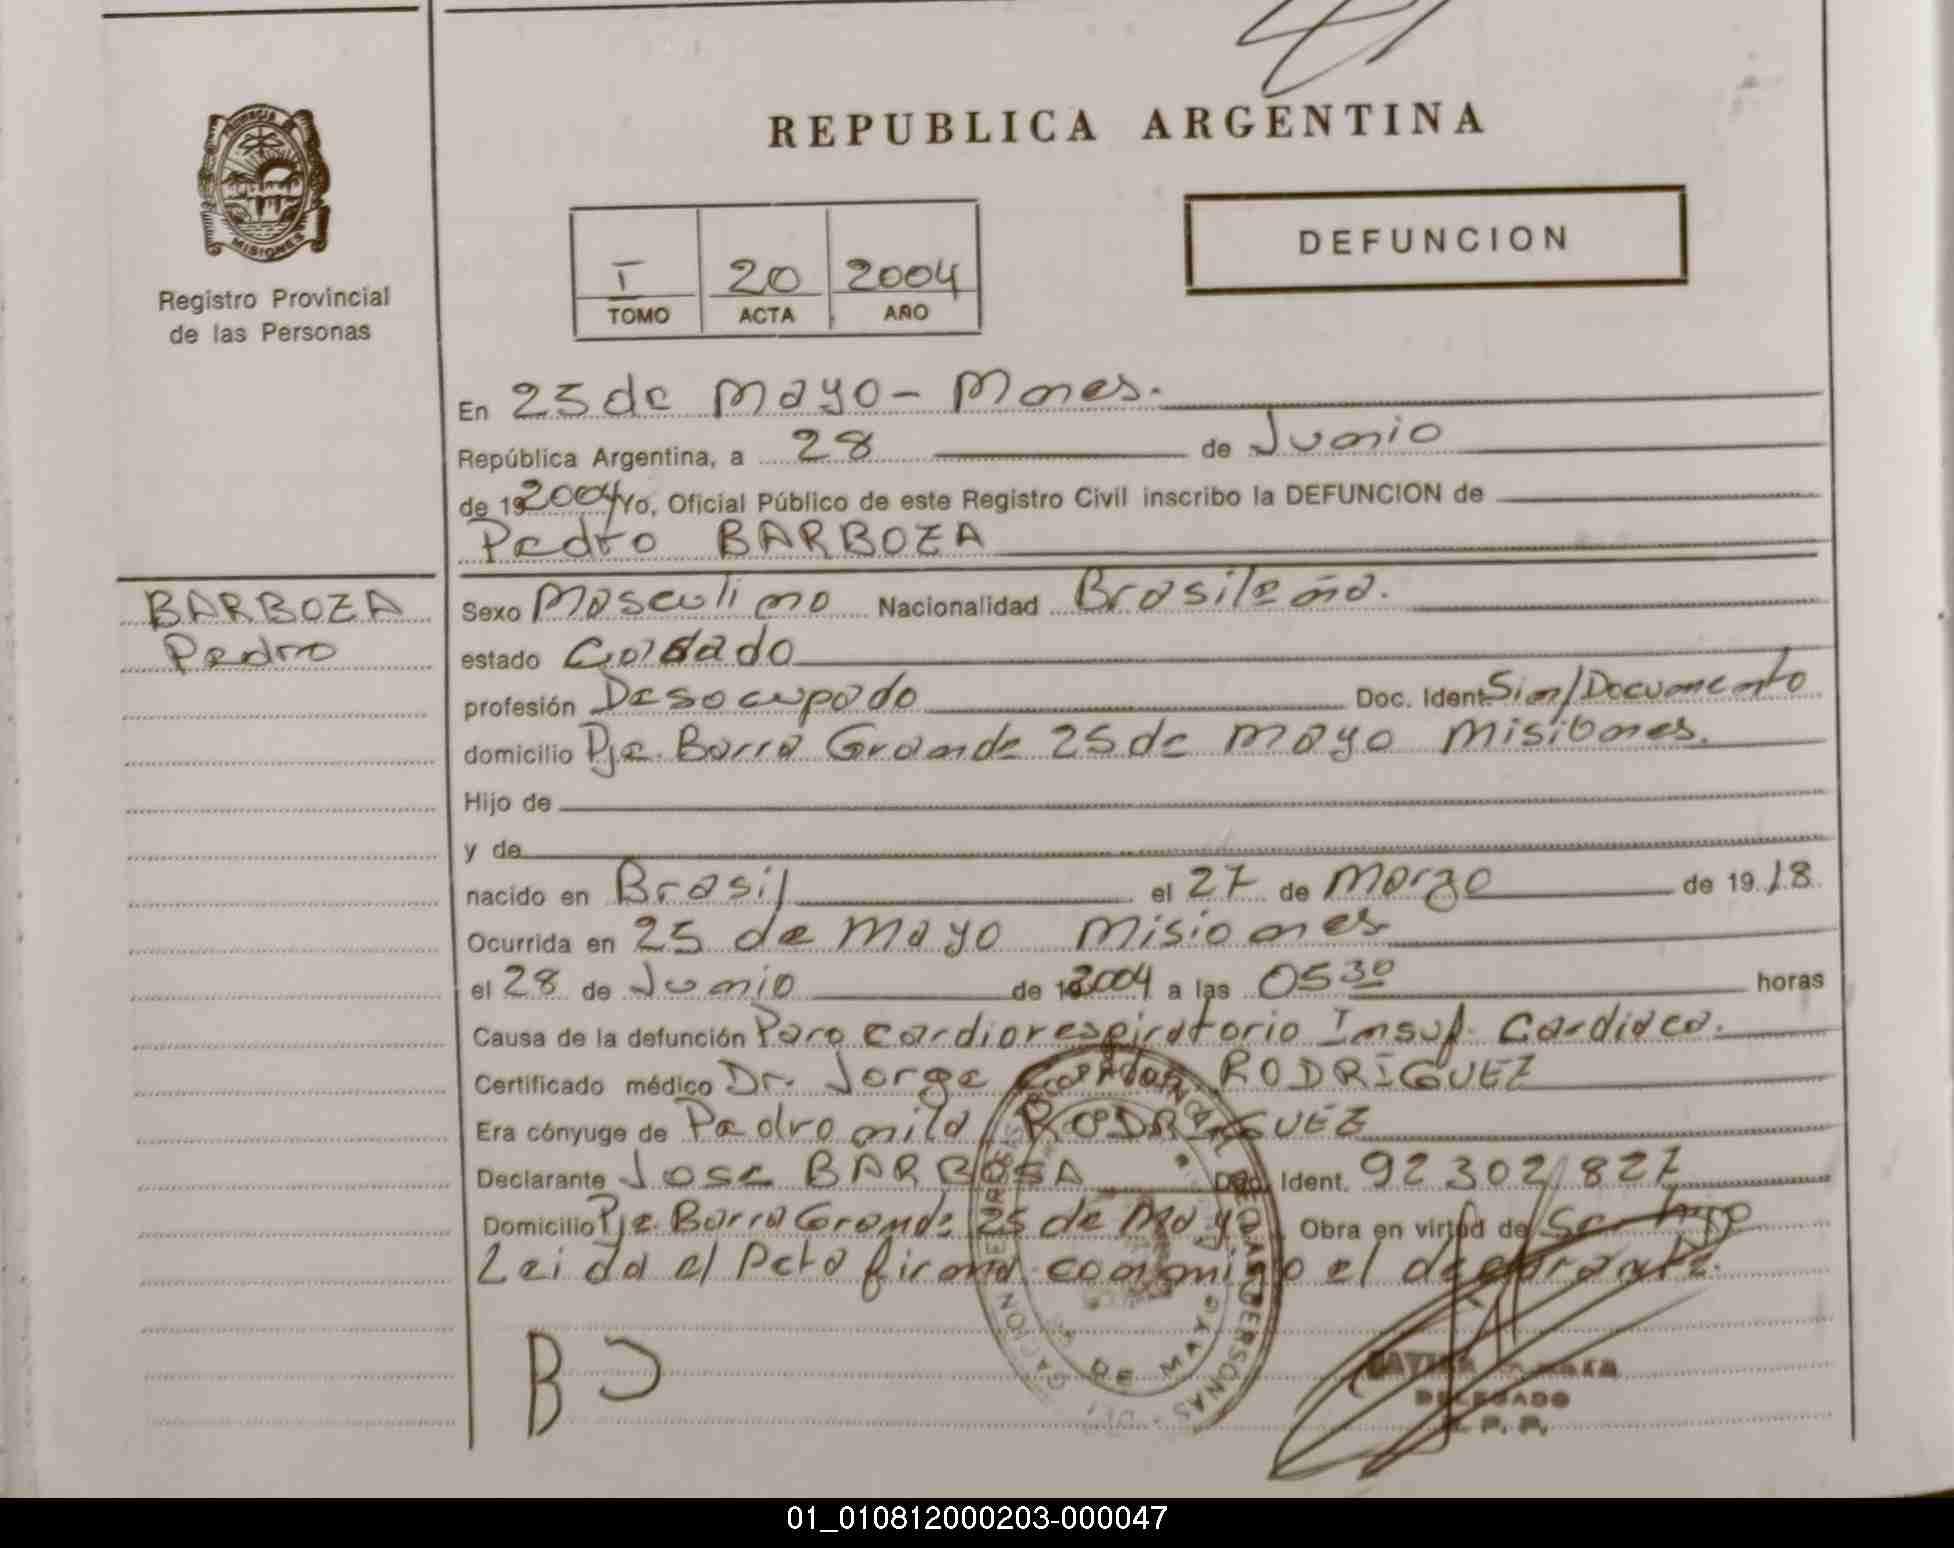 REPUBLICA ARGENTINA
PROVINCIA DE
MISIONES
Registro Provincial
de las Personas
I 20 2004
TOMO ACTA AÑO
DEFUNCION
En 25 de Mayo - Mnes.
República Argentina, a 28 de Junio
de 19 2004 Yo, Oficial Público de este Registro Civil inscribo la DEFUNCION de
Pedro BARBOZA
BARBOZA
Pedro
Sexo Masculino Nacionalidad Brasileña.
estado Casado
profesión Desocupado Doc. Ident. Sin/Documento
domicilio Pje. Barra Grande 25 de Mayo Misiones.
Hijo de
y de
nacido en Brasil el 27 de Marzo de 19 18
Ocurrida en 25 de Mayo Misiones
el 28 de Junio de 2004 a las 05 30 horas
Causa de la defunción Paro cardiorespiratorio Insuf. Cardiaca.
Certificado médico Dr. Jorge RODRIGUEZ
Era cónyuge de Pedromila RODRIGUEZ
Declarante Jose BARBOSA Doc. Ident. 92 302 827
Domicilio Pje. Barra Grande 25 de Mayo Obra en virtud de Ser hijo
Leida el Acta firma conmigo el declarante.
B J
DE MAYO
DELEGADO
01_010812000203-000047